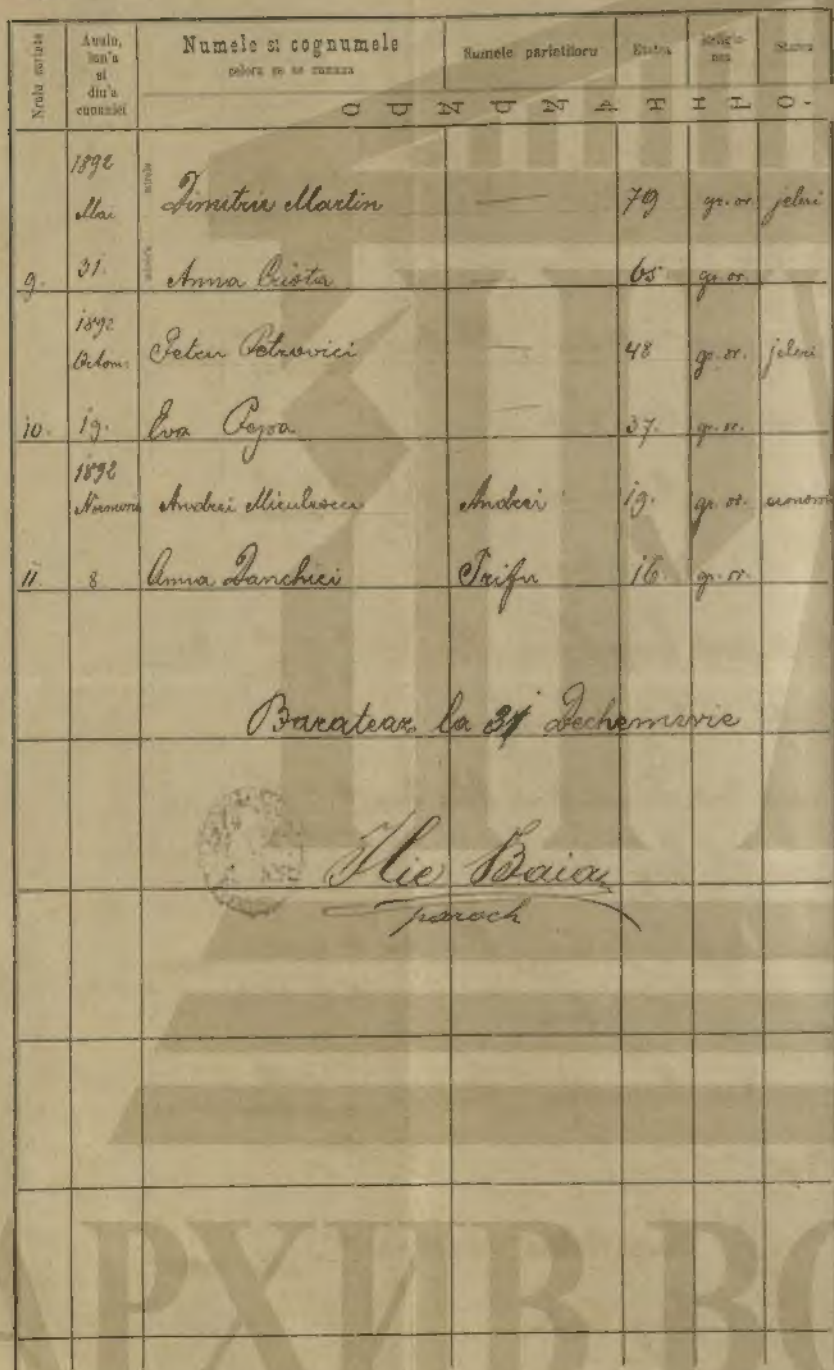 Nrulu curinte
Anulu, lun'a si diu'a cununiei
Numele si cognumele
celoru ce se cununa
Numele parintiloru
Etatea
Religiunea
Starea
CUNUNATILO-
mirele
1892
Mai
Dimitrie Martin
—
79
gr. or.
jeleri
miresa
9.
31.
Anna Crista
65
gr. or.
1892
Octom.
Petru Petrovici
—
48
gr. or.
jeleri
10.
19.
Eva Popa
—
37.
gr. or.
1892
Andrei Miculescu
Andrei
19.
gr. or.
11.
8
Anna Danchici
Trifu
16.
gr. or.
Barateaz la 31 Dechemvrie
Ilie Baia
paroch
АРХИВ ВО